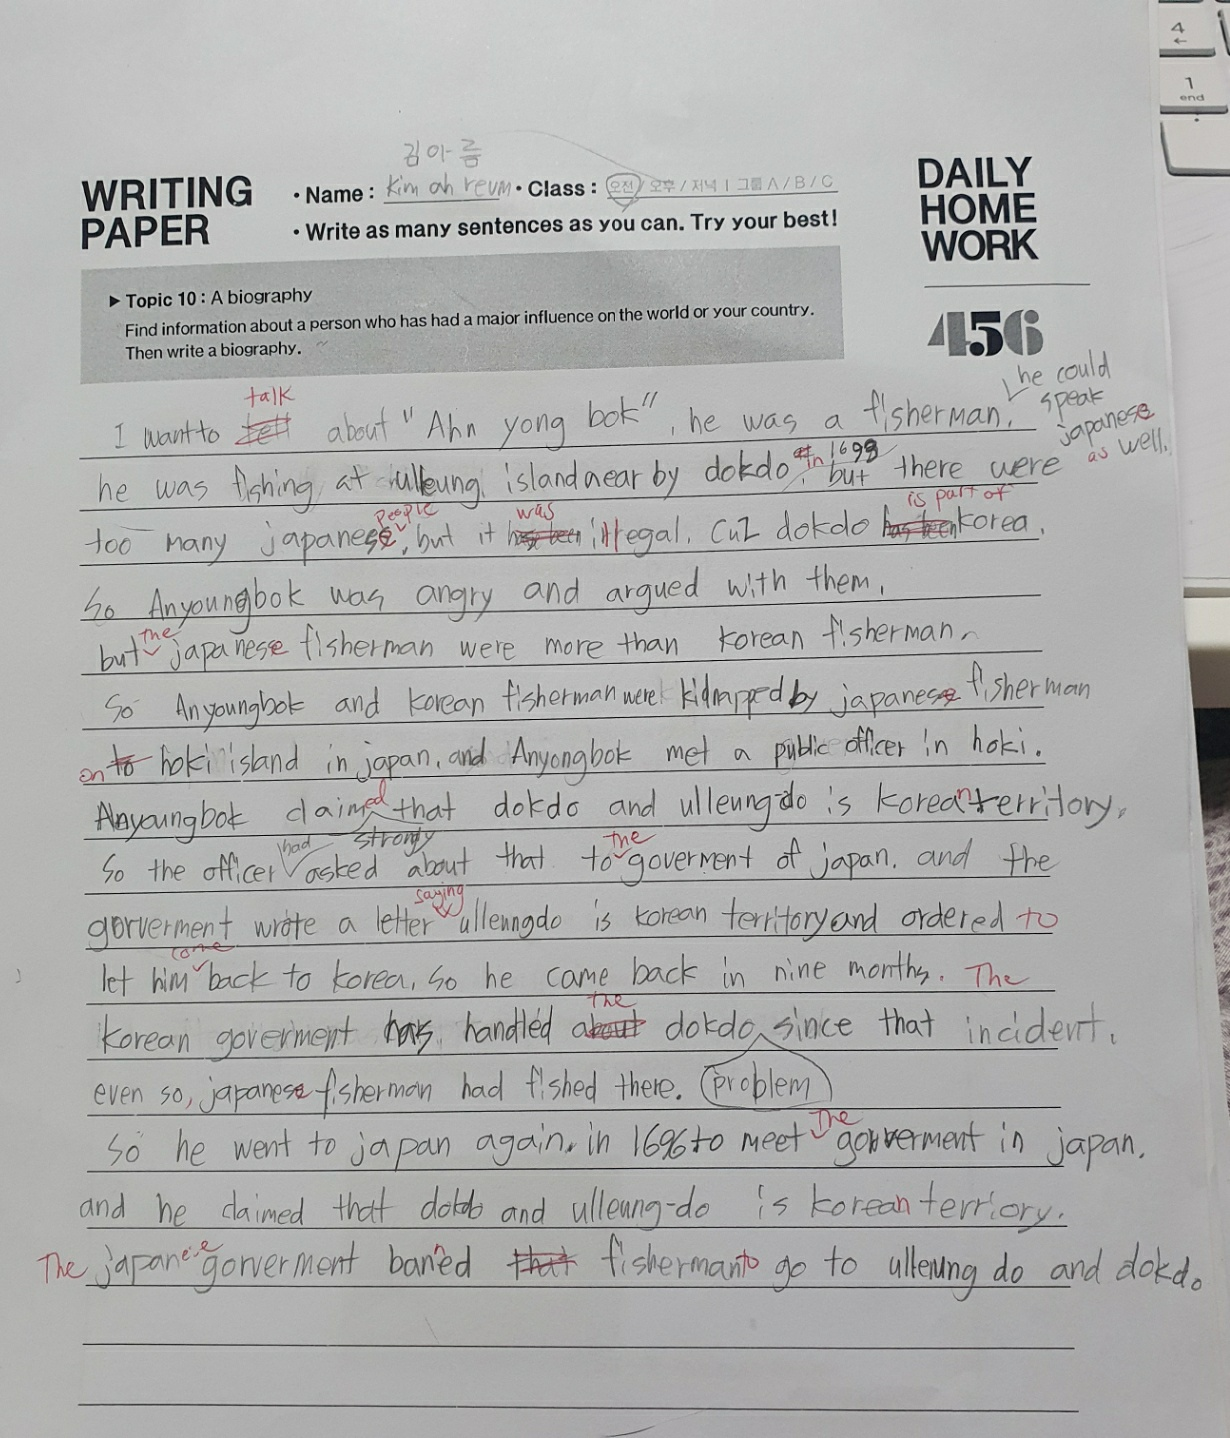 김아름
WRITING PAPER
• Name : Kim ah reum • Class : 오전 / 오후 / 저녁 | 그룹 A / B / C
• Write as many sentences as you can. Try your best!
DAILY
HOME
WORK
456
▶ Topic 10 : A biography
Find information about a person who has had a major influence on the world or your country.
Then write a biography.
talk
he could
speak
japanese
as well.
I want to tell about "Ahn yong bok", he was a fisherman.
he was fishing at ulleung island near by dokdo in 1693, but there were
people was is part of
too many japanese, but it has been illegal. Cuz dokdo has been korea.
So Anyoungbok was angry and argued with them,
the
but japanese fisherman were more than korean fisherman.
So Anyoungbok and korean fisherman were kidnapped by japanese fisherman
on to hoki island in japan, and Anyongbok met a public officer in hoki.
Anyoungbok claimed that dokdo and ulleung-do is korean territory.
had strongly the
So the officer asked about that to goverment of japan. and the
saying
gorverment wrote a letter ulleungdo is korean territory and ordered to
come
let him back to korea, so he came back in nine months. The
the
korean goverment has handled about dokdo since that incident.
even so, japanese fisherman had fished there. problem
The
So he went to japan again, in 1696 to meet gorverment in japan.
and he claimed that dokdo and ulleung-do is korean terriory.
The japanese gorverment banned that fisherman to go to ulleung do and dokdo.
4
1
end